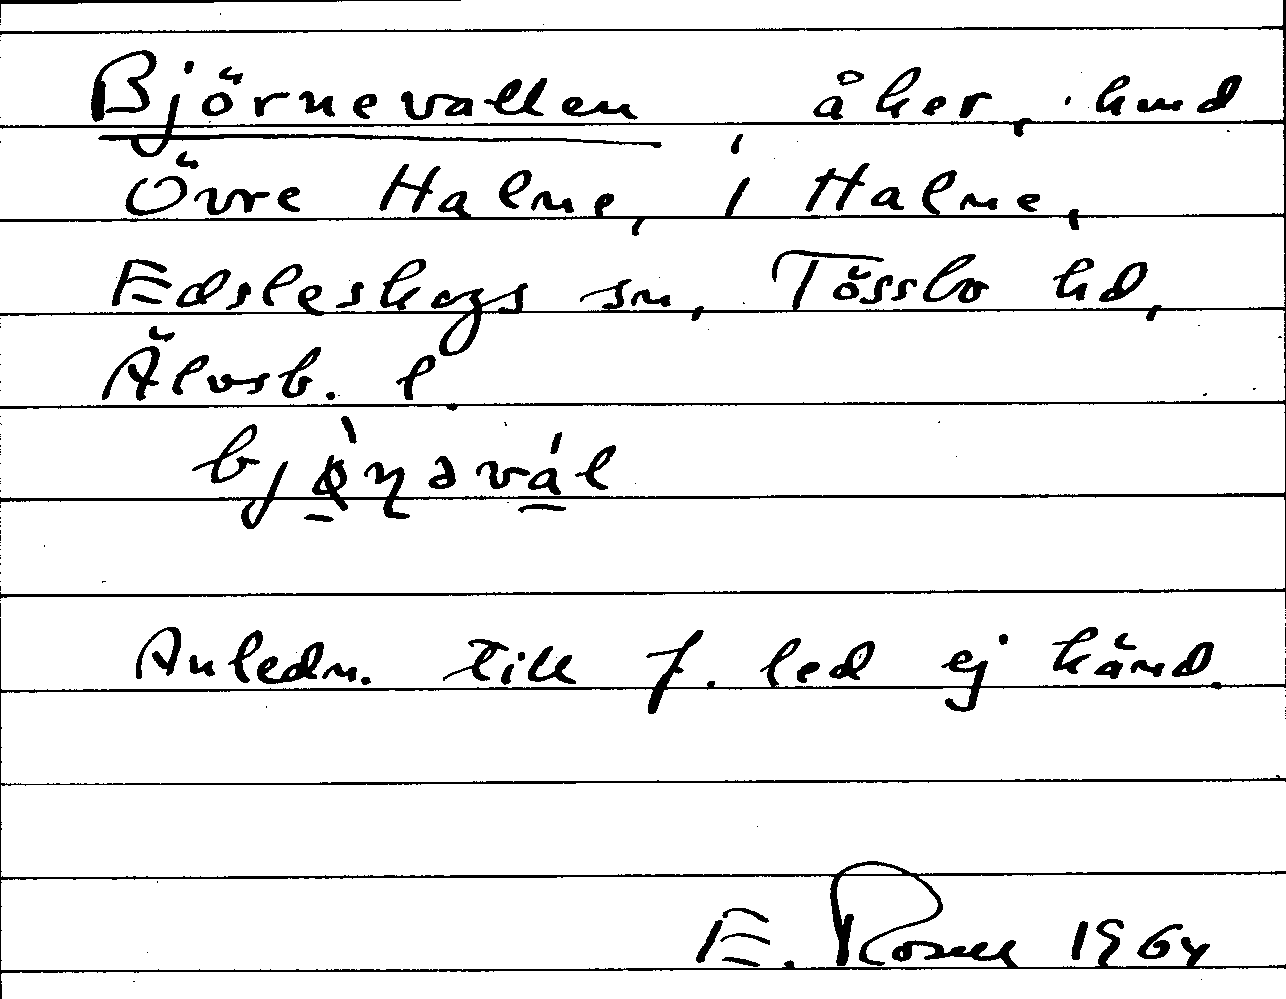 Björnevallen, åker, hmd
Övre Halne, i Halne,
Edsleskogs sn, Tössbo hd,
Älvsb. l.
bjø̀ɳəvál
Anledn. till f. led ej känd.
E. Rosell 1964